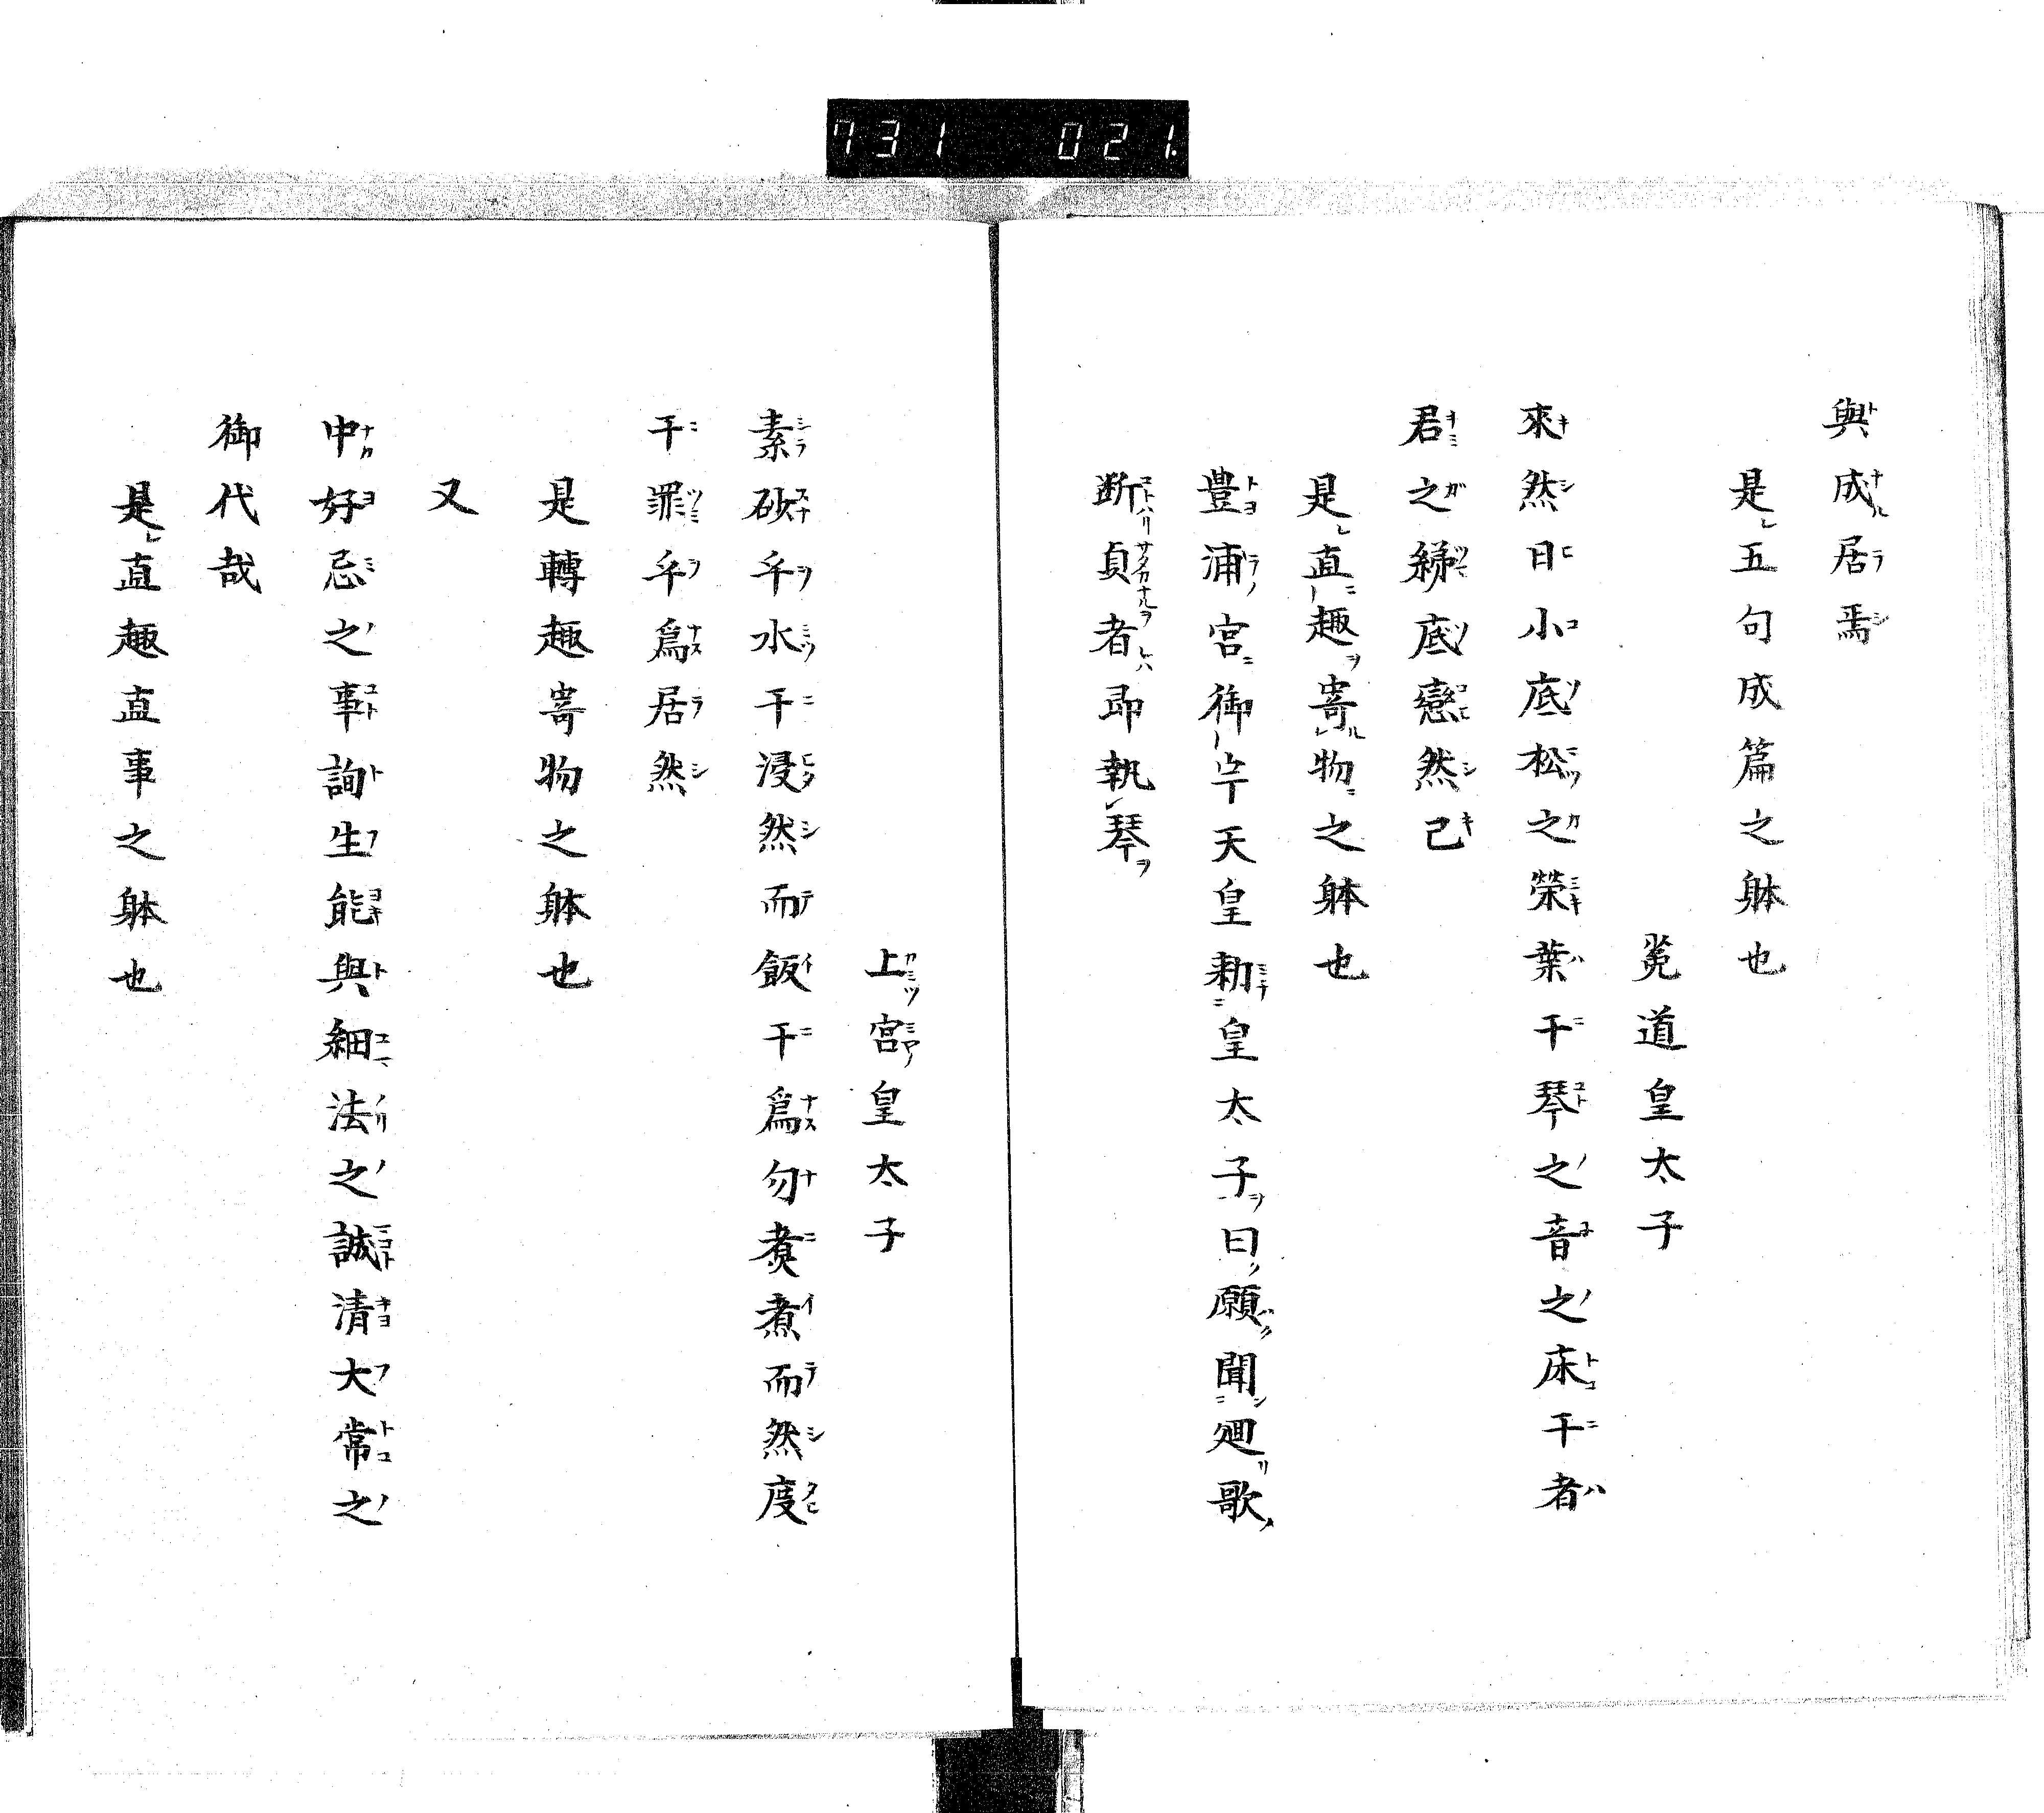 731 021.
與成居焉
是五句成篇之躰也
菟道皇太子
來然日小底松之榮葉干琴之音之床干者
君之綈底戀然己
是直趣寄物之躰也
豊浦宮御宇天皇勅皇太子曰願聞廻歌
断貞者即執琴
上宮皇太子
素砂乎水干浸然而飯干爲勿煮煮而然度
干罪乎爲居然
是轉趣寄物之躰也
又
中好忌之事詢生能與細法之誠清大常之
御代哉
是直趣直事之躰也